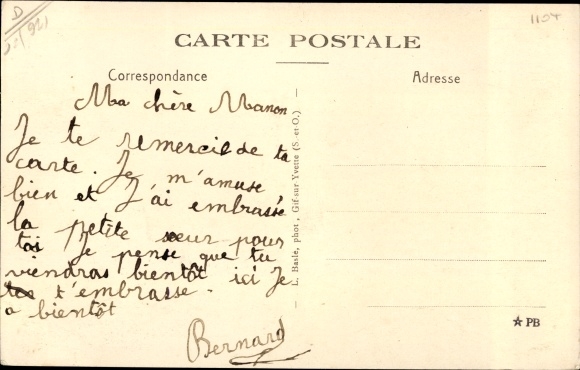 D
1104
CARTE POSTALE
Correspondance
Adresse
Ma chère Manon
Je te remercie de ta
carte. Je m'amuse
bien et J'ai embrassé
la petite sœur pour
toi Je pense que tu
viendras bientôt ici Je
t'embrasse.
a bientôt
Bernard
L. Basle, phot., Gif-sur-Yvette (S.-et-O.)
★ PB